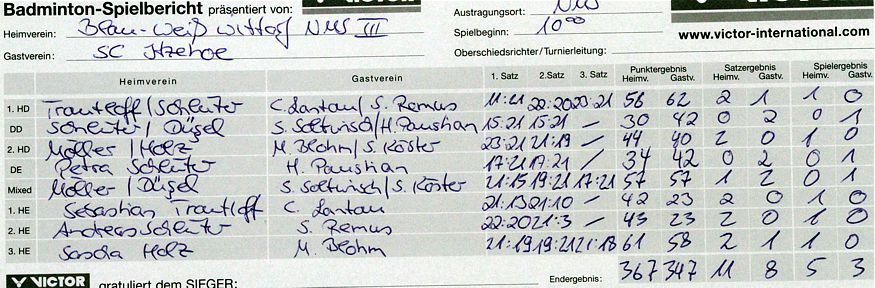 Badminton-Spielbericht präsentiert von:
Austragungsort: NMS
Heimverein: Blau-Weiß Wittorf NMS III
Spielbeginn: 10 00
www.victor-international.com
Gastverein: SC Itzehoe
Oberschiedsrichter/Turnierleitung:
Heimverein Gastverein 1. Satz 2. Satz 3. Satz Punktergebnis Heimv. Gastv. Satzergebnis Heimv. Gastv. Spielergebnis Heimv. Gastv.
1. HD Trautloff/Schlüter C. Lantau/S. Remus 11:21 22:20 23:21 56 62 2 1 1 0
DD Schlüter/Düsel S. Soltwisch/H. Paustian 15:21 15:21 / 30 42 0 2 0 1
2. HD Möller/Holz M. Blohm/S. Köster 23:21 21:19 / 44 40 2 0 1 0
DE Petra Schlüter H. Paustian 17:21 17:21 / 34 42 0 2 0 1
Mixed Möller/Düsel S. Soltwisch/S. Köster 21:15 19:21 17:21 57 57 1 2 0 1
1. HE Sebastian Trautloff C. Lantau 21:13 21:10 / 42 23 2 0 1 0
2. HE Andreas Schlüter S. Remus 22:20 21:3 / 43 23 2 0 1 0
3. HE Sascha Holz M. Blohm 21:19 19:21 21:18 61 58 2 1 1 0
VICTOR gratuliert dem SIEGER: Endergebnis: 367 347 11 8 5 3